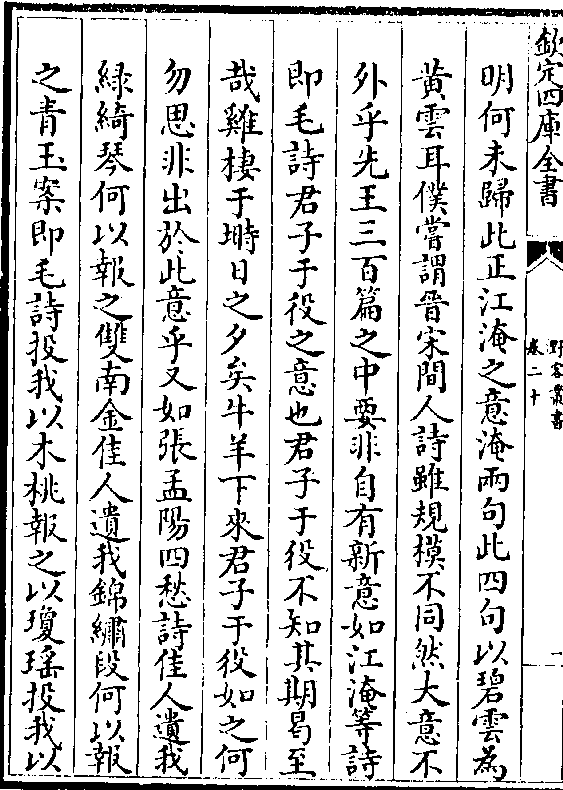 欽定四庫全書
野客叢書
卷二十
一
明何未歸此正江淹之意淹兩句此四句以碧雲為
黄雲耳僕嘗謂晉宋間人詩雖規模不同然大意不
外乎先王三百篇之中要非自有新意如江淹等詩
即毛詩君子于役之意也君子于役不知其期曷至
哉雞棲于塒日之夕矣牛羊下來君子于役如之何
勿思非出於此意乎又如張孟陽四愁詩佳人遺我
緑綺琴何以報之雙南金佳人遺我錦繡段何以報
之青玉案即毛詩投我以木桃報之以瓊瑤投我以